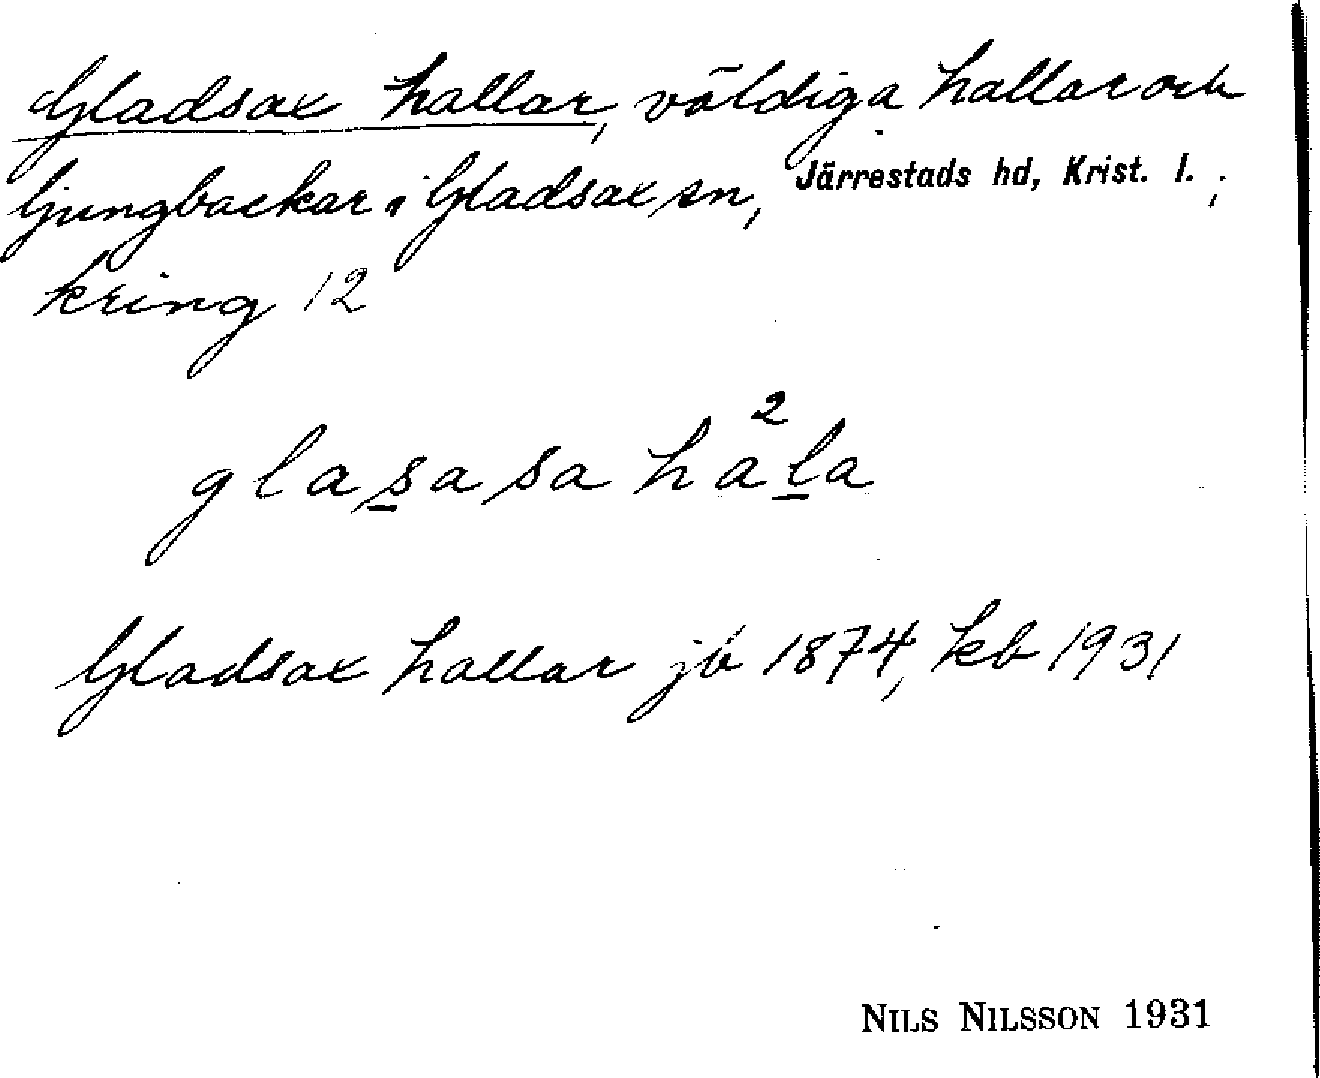 Gladsax hallar, väldiga hallar och
ljungbackar i Gladsax sn, Järrestads hd, Krist. l. ;
kring 12
glasasa ha²la
Gladsax hallar jb 1874, kb 1931
NILS NILSSON 1931